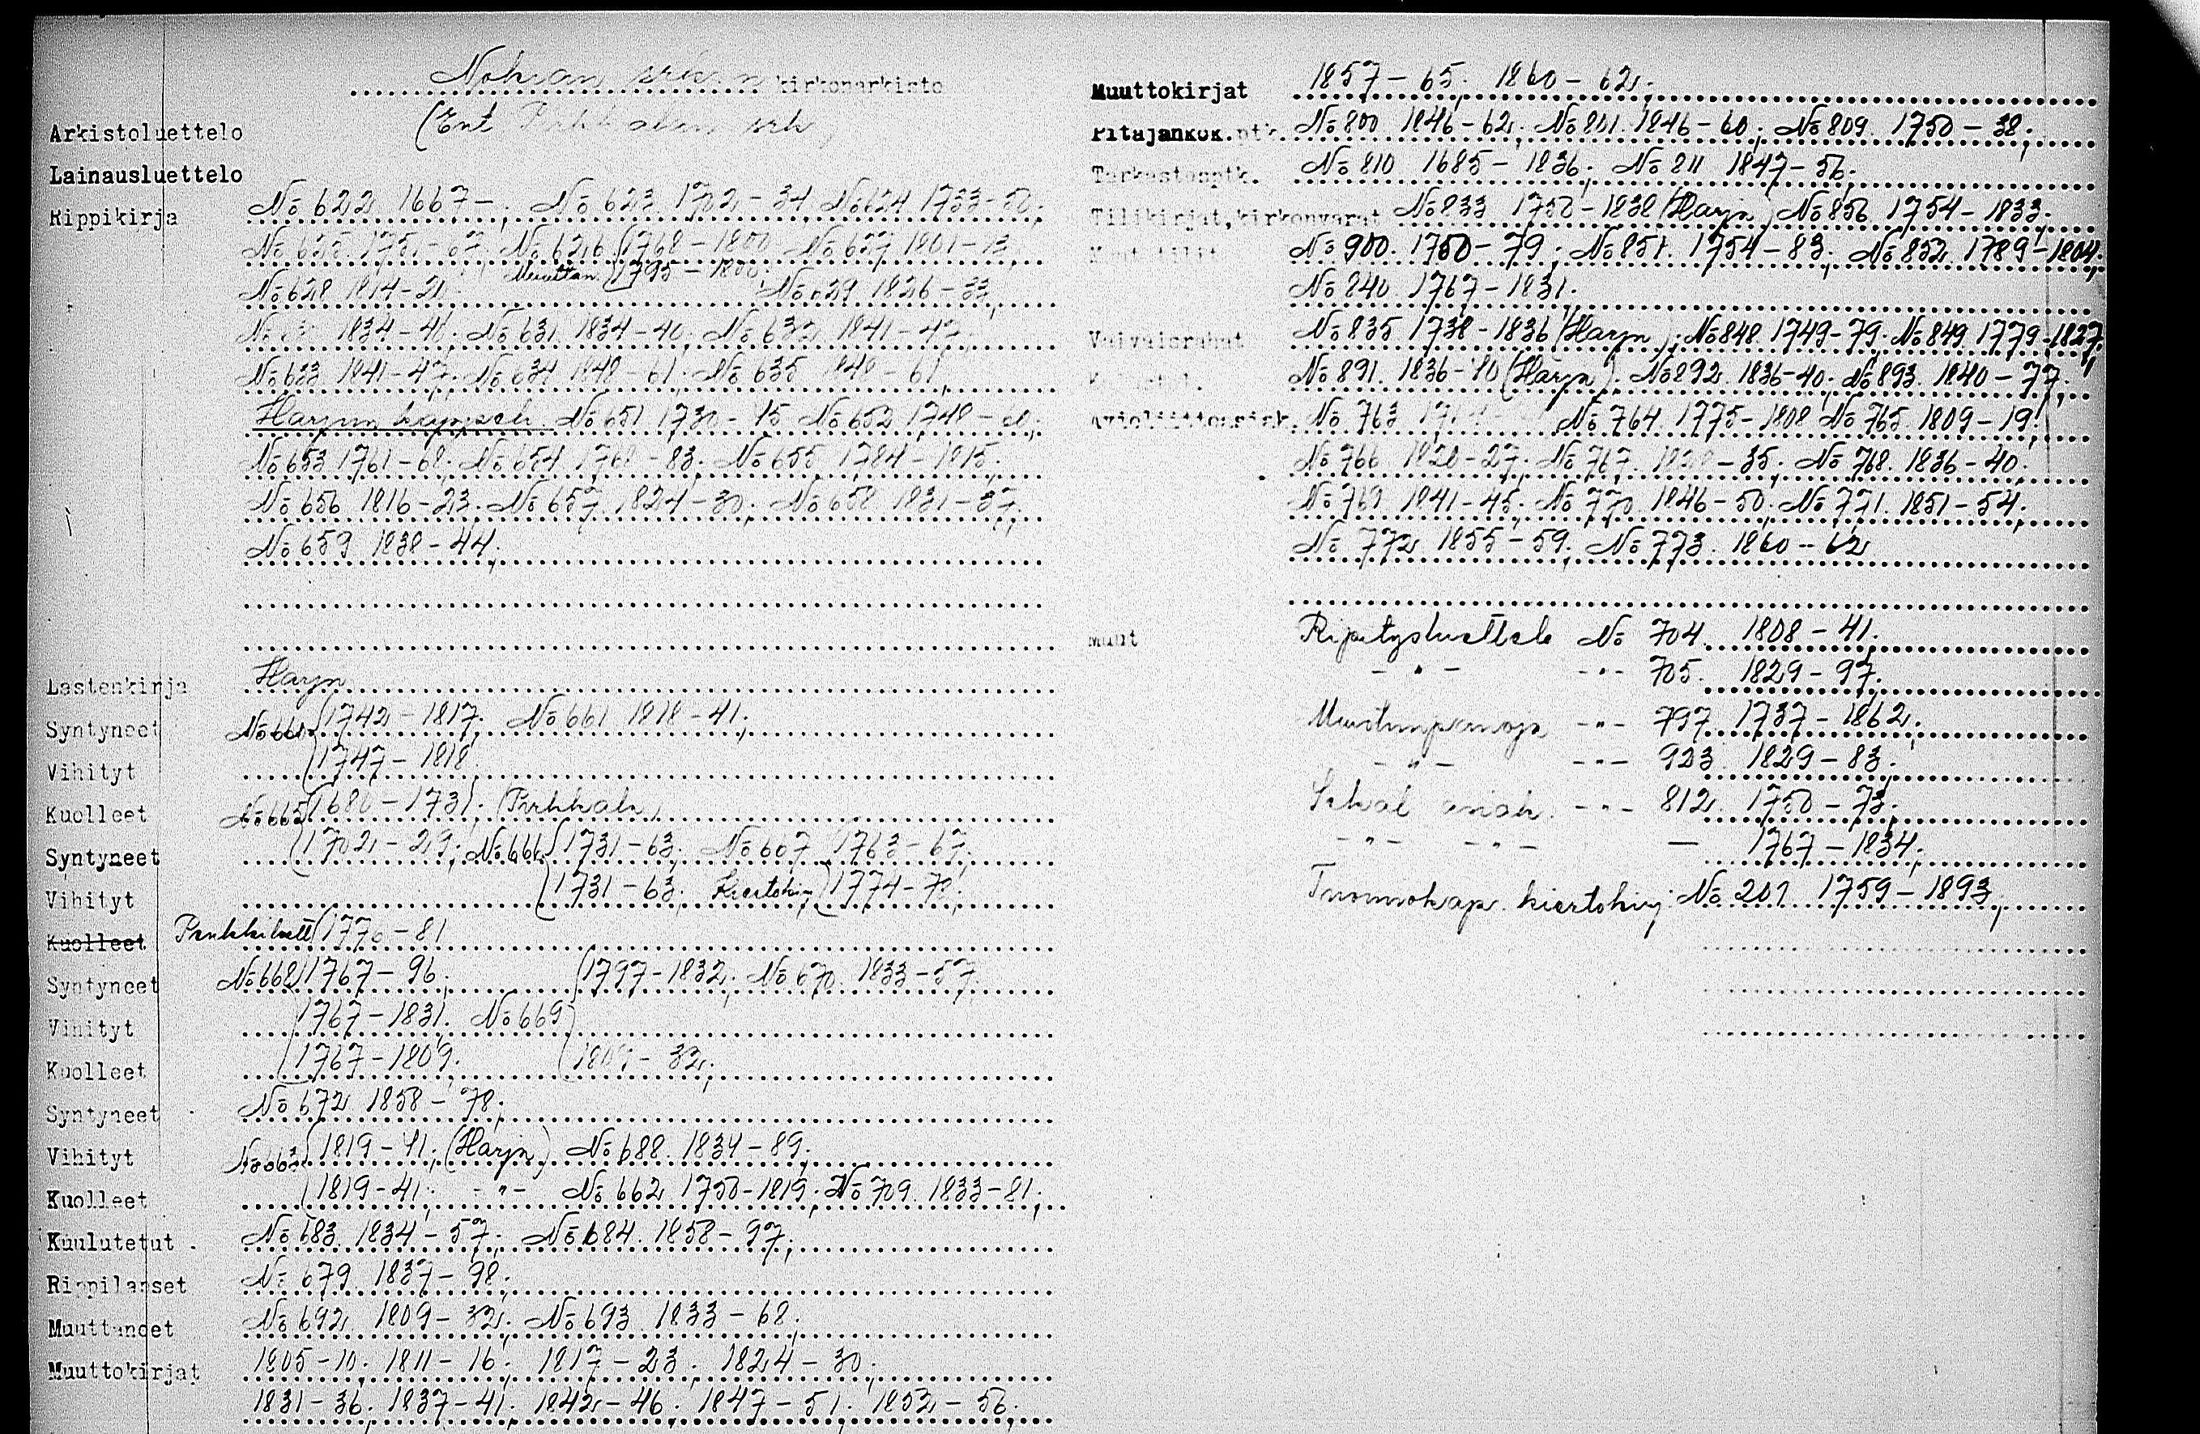 Nokian srk:n kirkonarkisto
(Ent Pirkkalan srk)
Arkistoluettelo
Lainausluettelo
Rippikirja No 622 1667-; No 623 1702-34, No 624 1733-50;
No 625 1751-67, No 626 (1768-1800 No 627 1801-13,
No 628 1814-21 Muuttan. (1795-1800; No 629 1826-33,
1834-41; No 631 1834-40; No 632 1841-47,
No 633 1841-47; No 634 1848-61; No 635 1848-61,
Harjun kappeli No 651 1730-45 No 652 1748-61;
No 653 1761-68; No 654 1768-83; No 655 1784-1815;
No 656 1816-23; No 657 1824-30; No 658 1831-37;
No 659 1838-44;
Lastenkirja Harjn
Syntyneet No 660 (1742-1817; No 661 1818-41;
Vihityt (1747-1818
Kuolleet No 665 (1680-1731; (Pirkkala)
Syntyneet (1702-29; No 666 (1731-63; No 667 (1763-67;
Vihityt (1731-63; Kiertokirj (1774-78;
Kuolleet (1770-81
Syntyneet No 668 (1767-96; (1797-1832; No 670 1833-57
Vihityt 1767-1831. No 669
Kuolleet (1767-1809; (1809-32;
Syntyneet No 672 1858-78;
Vihityt No 663 (1819-41; (Harjn) No 688. 1834-89;
Kuolleet (1819-41; -"- No 662 1750-1819; No 709. 1833-81;
Kuulutetut No 683. 1834-57; No 684. 1858-97;
Rippilapset No 679. 1837-98;
Muuttaneet No 692. 1809-32; No 693 1833-68;
Muuttokirjat 1805-10; 1811-16; 1817-23; 1824-30;
1831-36; 1837-41; 1842-46; 1847-51; 1852-56;
Muuttokirjat 1857-65; 1860-62;
Pitäjänkok.ptk. No 800 1846-62; No 801. 1846-60; No 809. 1750-38;
Tarkastusptk. No 810 1685-1836; No 811 1847-56;
Tilikirjat,kirkonvarat No 833 1750-1838 (Harjn) No 856 1754-1833;
Muut tilit No 900. 1760-79; No 851. 1754-83; No 852 1789-1804;
No 840 1767-1831;
Vaivaisrahat No 835 1738-1836 (Harjn); No 848 1749-79; No 849 1779-1827,
No 891. 1836-40 (Harjn); No 892. 1836-40; No 893. 1840-77;
Avioliittoasiak. No 763 No 764. 1775-1808 No 765. 1809-19;
No 766 1820-27; No 767. 1828-35; No 768. 1836-40;
No 769 1841-45; No 770 1846-50; No 771. 1851-54;
No 772. 1855-59; No 773. 1860-62
Muut Ripitysluettelo No 704. 1808-41;
-"- -"- 705. 1829-97.
-"- 797. 1737-1862;
-"- -"- 923. 1829-83;
-"- 812. 1750-73;
-"- -"- — 1767-1834;
Tuomiokap. kiertokirj No 201 1759-1893,